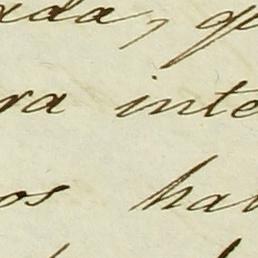 ada, q
ra inte
os hav